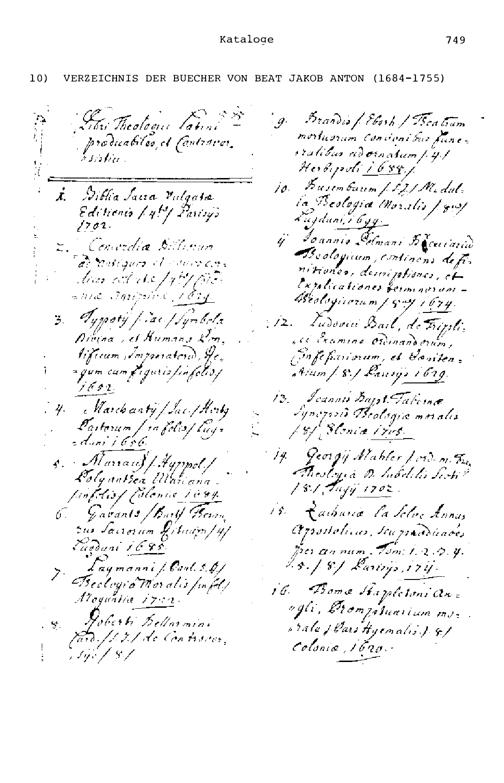 Kataloge 749
10) VERZEICHNIS DER BUECHER VON BEAT JAKOB ANTON (1684-1755)
Libri Theologici Latini
prædicabiles, et Controver-
sistici
1. Biblia Sacra Vulgatæ
Editionis / 4to / Parisijs
1702.
2. Concordiæ Bibliorum
1629
3. Typotij / Jac / Symbola
Divina, et Humana Pon-
tificum, Imperatorum, Re-
gum cum figuris / infolis /
1652
4. Marchantij / Jac / Hortg
Pastorum / in folis / Lug-
duni 1656.
5. Marracij / Hyppol /
Polyanthea Mariana
/ infolis / Coloniæ 1684.
6. Gavanto / Bart /
rus Sacrorum Rituum / 4 /
Lugduni 1685.
7. Laymanni / Paul. S.J. /
Theologia Moralis / infol /
Moguntiæ
8. Roberti Bellarmini
Card. / S.J. / de Controver-
sijs / 8 /
9. Brandis / Eborh / Theatrum
mortuorum concionibus fune-
ralibus adornatum / 4 /
Herbipoli 1688.
10. Busembaum / S.J. / Medul-
la Theologiæ Moralis / 8vo /
Lugduni,
11 Joannis
Theologicum, continens defi-
nitiones, descriptiones, et
Explicationes terminorum
Theologicorum / 8vo / 1674.
12. Ludovici Bail, de Tripli-
ci Examine ordinandorum,
Confessariorum, et Pœniten-
tium / 8 / Parisijs 1629.
13. Joannis Bapst. Tabernæ
Synopsis Theologiæ moralis
/ 8 / Coloniæ 1705.
14. Georgij Mahler / ord. m.
Theologia
/ 8 / Tugij 1702.
15. Zachariæ la Selve Annus
Apostolicus, seu prædicabes
per annum. Tom: 1. 2. 3. 4.
5. / 8 / Parisijs,
16. Thomæ Stapletoni An-
gli, Promptuarium mo-
rale / Pars Hyemalis / 8 /
Coloniæ, 1620.